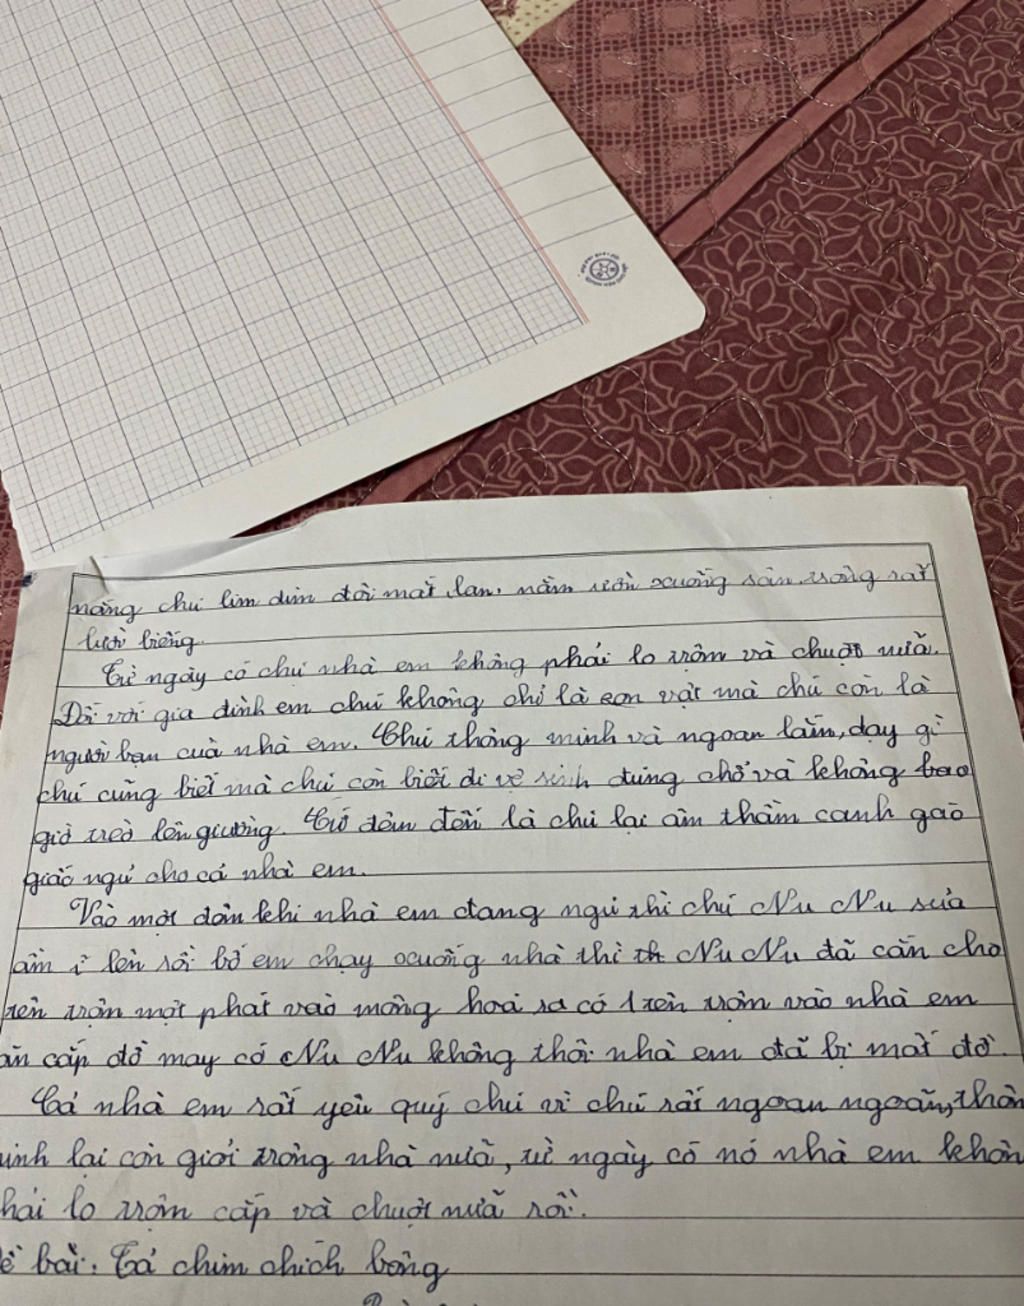 nắng chú lim dim đôi mắt lan, nằm ườn xuống sân trông rất
lười biếng.
Từ ngày có chú nhà em không phải lo trộm và chuột nữa.
Đối với gia đình em chú không chỉ là con vật mà chú còn là
người bạn của nhà em. Chú thông minh và ngoan lắm, dạy gì
chú cũng biết mà chú còn biết đi vệ sinh đúng chỗ và không bao
giờ trèo lên giường. Cứ đêm đến là chú lại âm thầm canh gác
giấc ngủ cho cả nhà em.
Vào một đêm khi nhà em đang ngủ thì chú Nu Nu sủa
ầm ĩ lên rồi bố em chạy xuống nhà thì th Nu Nu đã cắn cho
tên trộm một phát vào mông hoá ra có 1 tên trộm vào nhà em
ăn cắp đồ may có Nu Nu không thôi nhà em đã bị mất đồ.
Cả nhà em rất yêu quý chú vì chú rất ngoan ngoãn, thôn
minh lại còn giỏi trông nhà nữa, từ ngày có nó nhà em khôn
hải lo trộm cắp và chuột nữa rồi.
ề bài: Tả chim chích bông